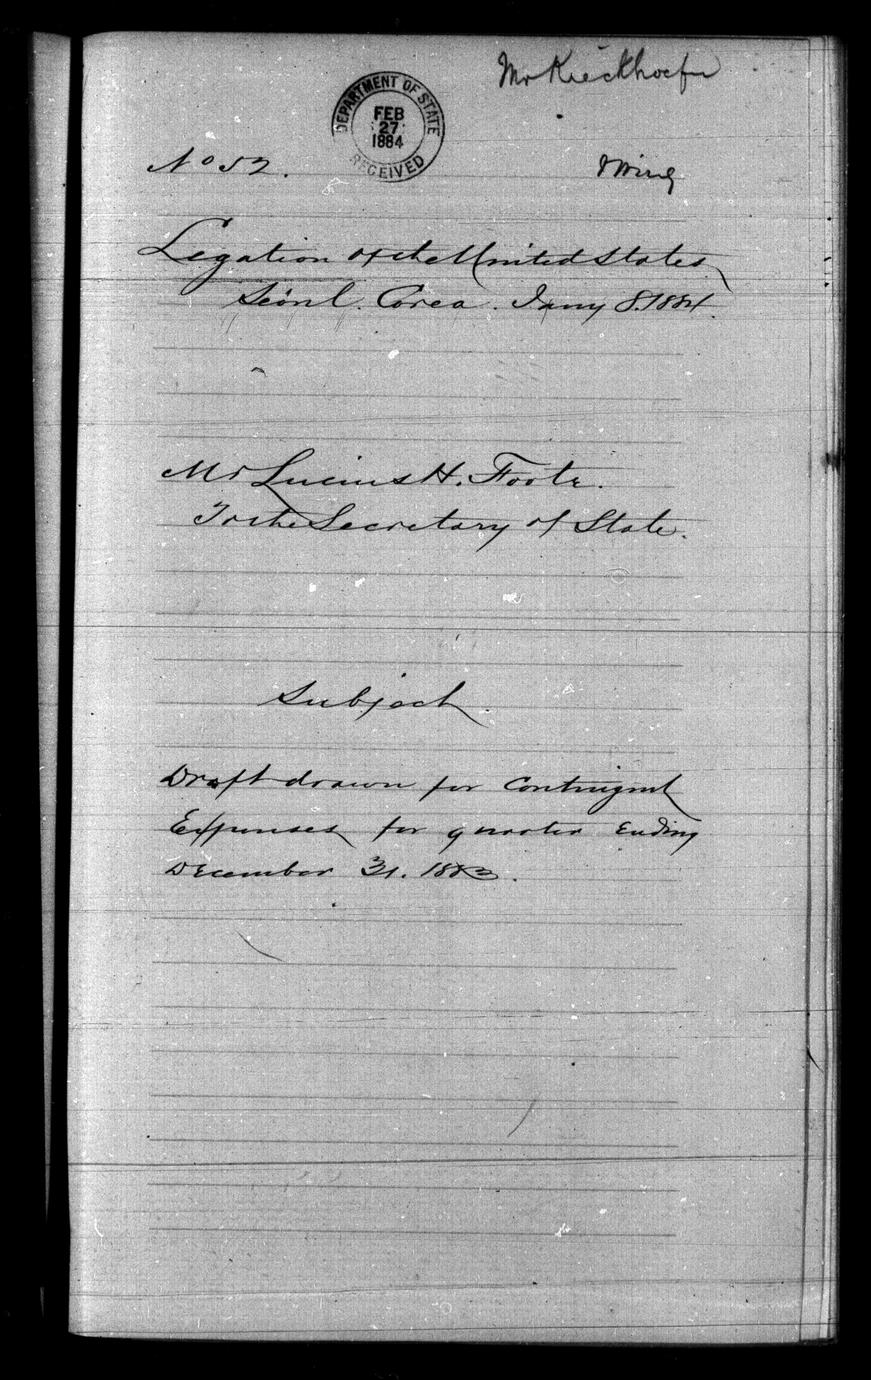 Mr Kieckhoefer
DEPARTMENT OF STATE
FEB
27
1884
RECEIVED
No 52.
Legation of the United States
Séoul. Corea. Jany 8. 1884.
Mr Lucius H. Foote.
To the Secretary of State.
Subject
Draft drawn for Contingent
Expenses for quarter Ending
December 31. 1883.